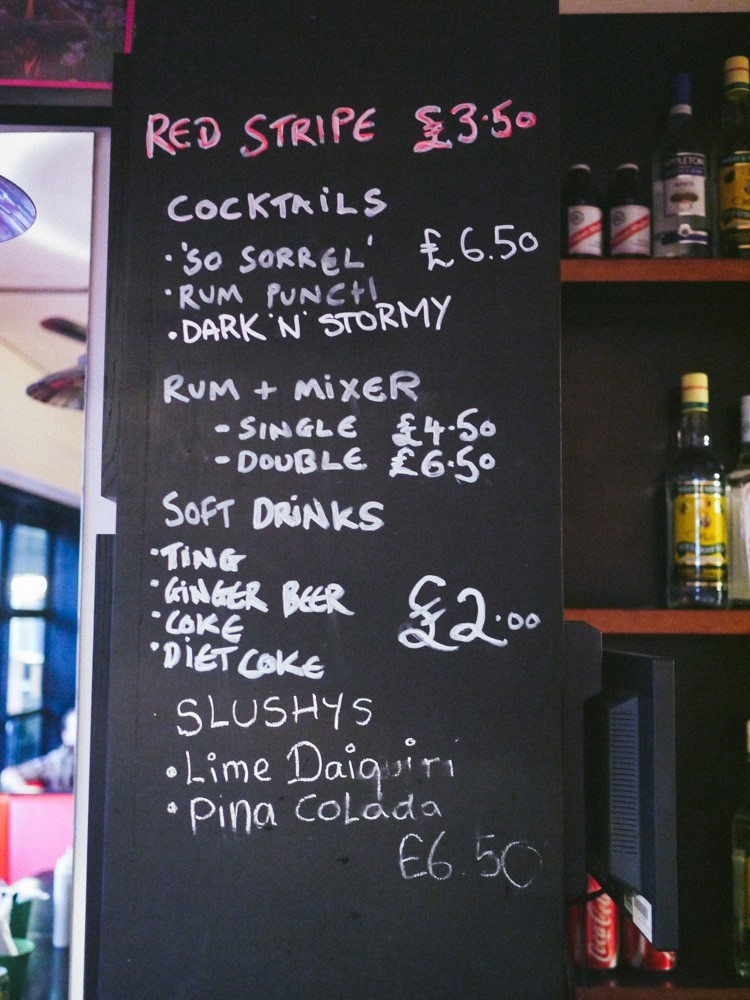 RED STRIPE £3.50
COCKTAILS
·'SO SORREL' £6.50
·RUM PUNCH
·DARK 'N' STORMY
RUM + MIXER
- SINGLE £4.50
- DOUBLE £6.50
SOFT DRINKS
·TING
·GINGER BEER
·COKE £2.00
·DIET COKE
SLUSHYS
·Lime Daiquiri
·Pina Colada
£6.50
APPLETON
WHITE
Coca-Cola